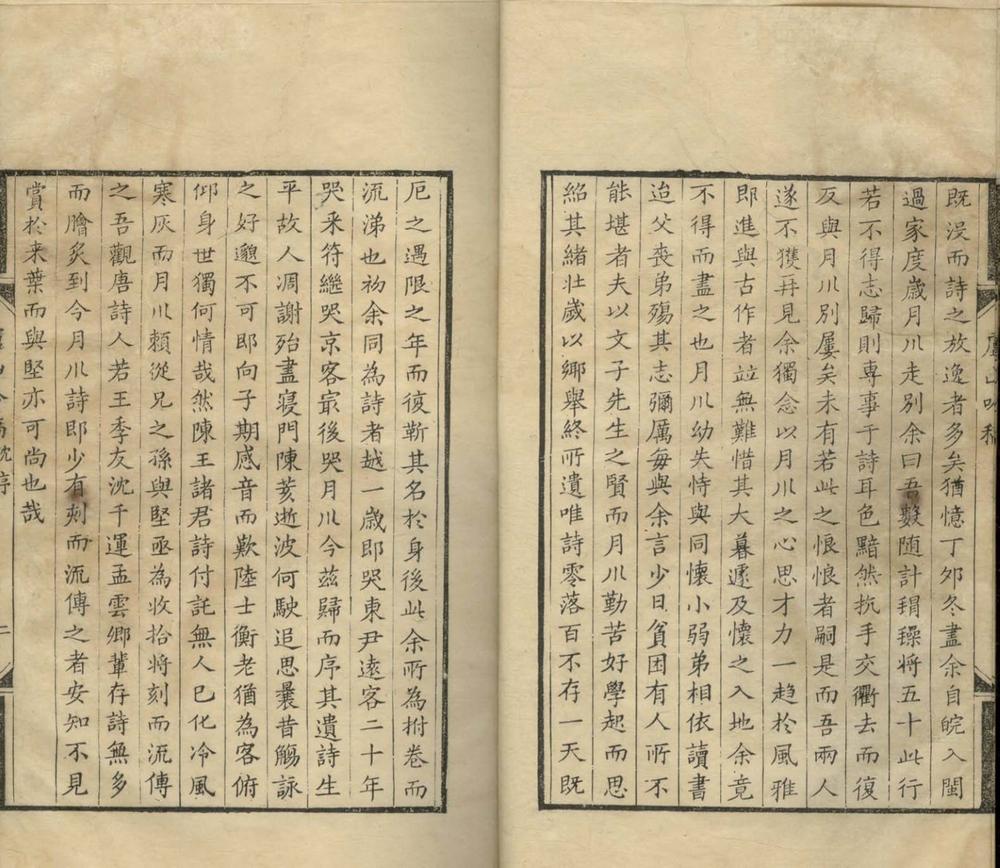 既没而詩之放逸者多矣猶憶丁夘冬盡余自皖入閩
過家度歲月川走别余曰吾數随計稍躁將五十此行
若不得志歸則専事于詩耳色黯然抗手交衢去而復
反與月川別屢矣未有若此之悢悢者嗣是而吾兩人
遂不獲再見余獨念以月川之心思才力一趋於風雅
即進與古作者竝無難惜其大暮遽及懷之入地余竟
不得而盡之也月川幼失恃與同懷小弱弟相依讀書
迨父喪弟殤其志彌厲每與余言少日貧困有人所不
能堪者夫以文子先生之賢而月川勤苦好學起而思
紹其緒壮歲以鄉舉終所遺唯詩零落百不存一天既
厄之遇限之年而復靳其名於身後此余所為拊卷而
流涕也初余同為詩者越一歲即哭東尹遠客二十年
哭釆符繼哭京客最後哭月川今兹歸而序其遺詩生
平故人凋謝殆盡寢門陳荄逝波何駛追思曩昔觴詠
之好邈不可即向子期感音而歎陸士衡老猶為客俯
仰身世獨何情哉然陳王諸君詩付託無人已化冷風
寒灰而月川頼從兄之孫與堅亟為收拾将刻而流傳
之吾觀唐詩人若王李友沈千運孟雲卿輩存詩無多
而膾炙到今月川詩即少有刻而流傳之者安知不見
賞於来葉而與堅亦可尚也哉